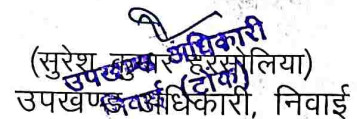 (सुरेश कुमार हरसोलिया)
उपखण्ड अधिकारी, निवाई
उपखण्ड अधिकारी
निवाई (टोंक)